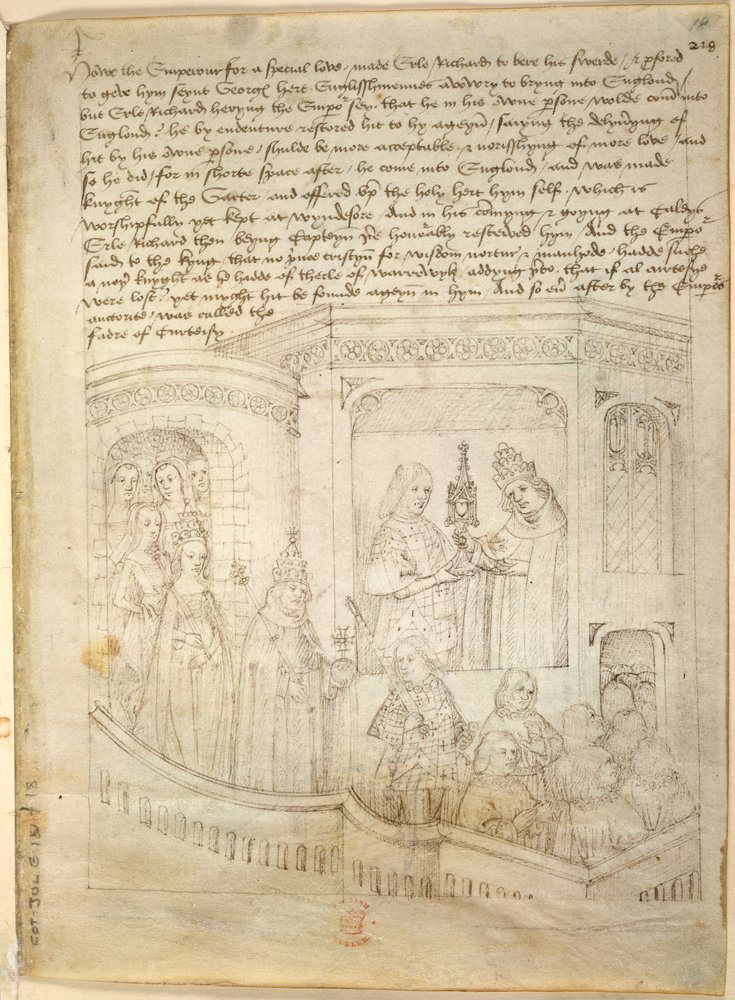 18
218
Nowe the Emperour for a special love made Erle Richard to bere his swerde / & pfored
to geve hym seynt Georges hert Englisshmennes avowry to bryng into Englond /
but Erle Richard heryng the Empor sey that he in his owne psone wolde com into
Englond / he by endenture restored hit to hy ageyn / saiyng the delyvyng of
hit by his owne psone / shulde be more acceptable & norisshyng of more love / and
so he did / for in shorte space after / he come into Englond / and was made
knyght of the Garter and offered vp the holy hert hym self which is
worshipfully yet kept at wyndesore And in his comyng & goyng at Caleys
Erle Richard then beyng Capteyn honorably resceived hym And the Empor
said to the kyng that no cristyn for wisdom nortur & manhode hadde suche
a knyght as he hadde of therle of warrewyk addyng that if al curtesye
were lost yet myght hit be founde ageyn in hym And so after by the Emprs
auctorite was called the
fadre of Curteisy
COT. JUL E IV / 18